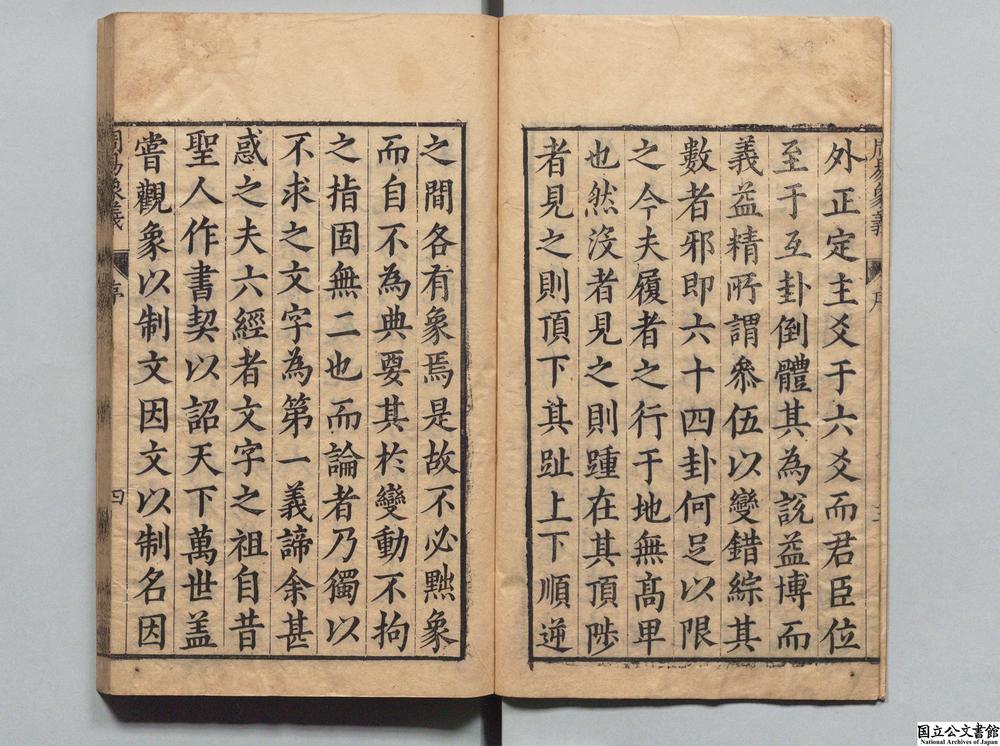 外正定主爻于六爻而君臣位
至于互卦倒體其為說益博而
義益精所謂叅伍以變錯綜其
數者邪即六十四卦何足以限
之今夫履者之行于地無髙卑
也然沒者見之則踵在其頂陟
者見之則頂下其趾上下順逆
之間各有象焉是故不必黜象
而自不為典要其於變動不拘
之指固無二也而論者乃獨以
不求之文字為第一義諦余甚
惑之夫六經者文字之祖自昔
聖人作書契以詔天下萬世盖
嘗觀象以制文因文以制名因
周易象義
序
四
国立公文書館
National Archives of Japan